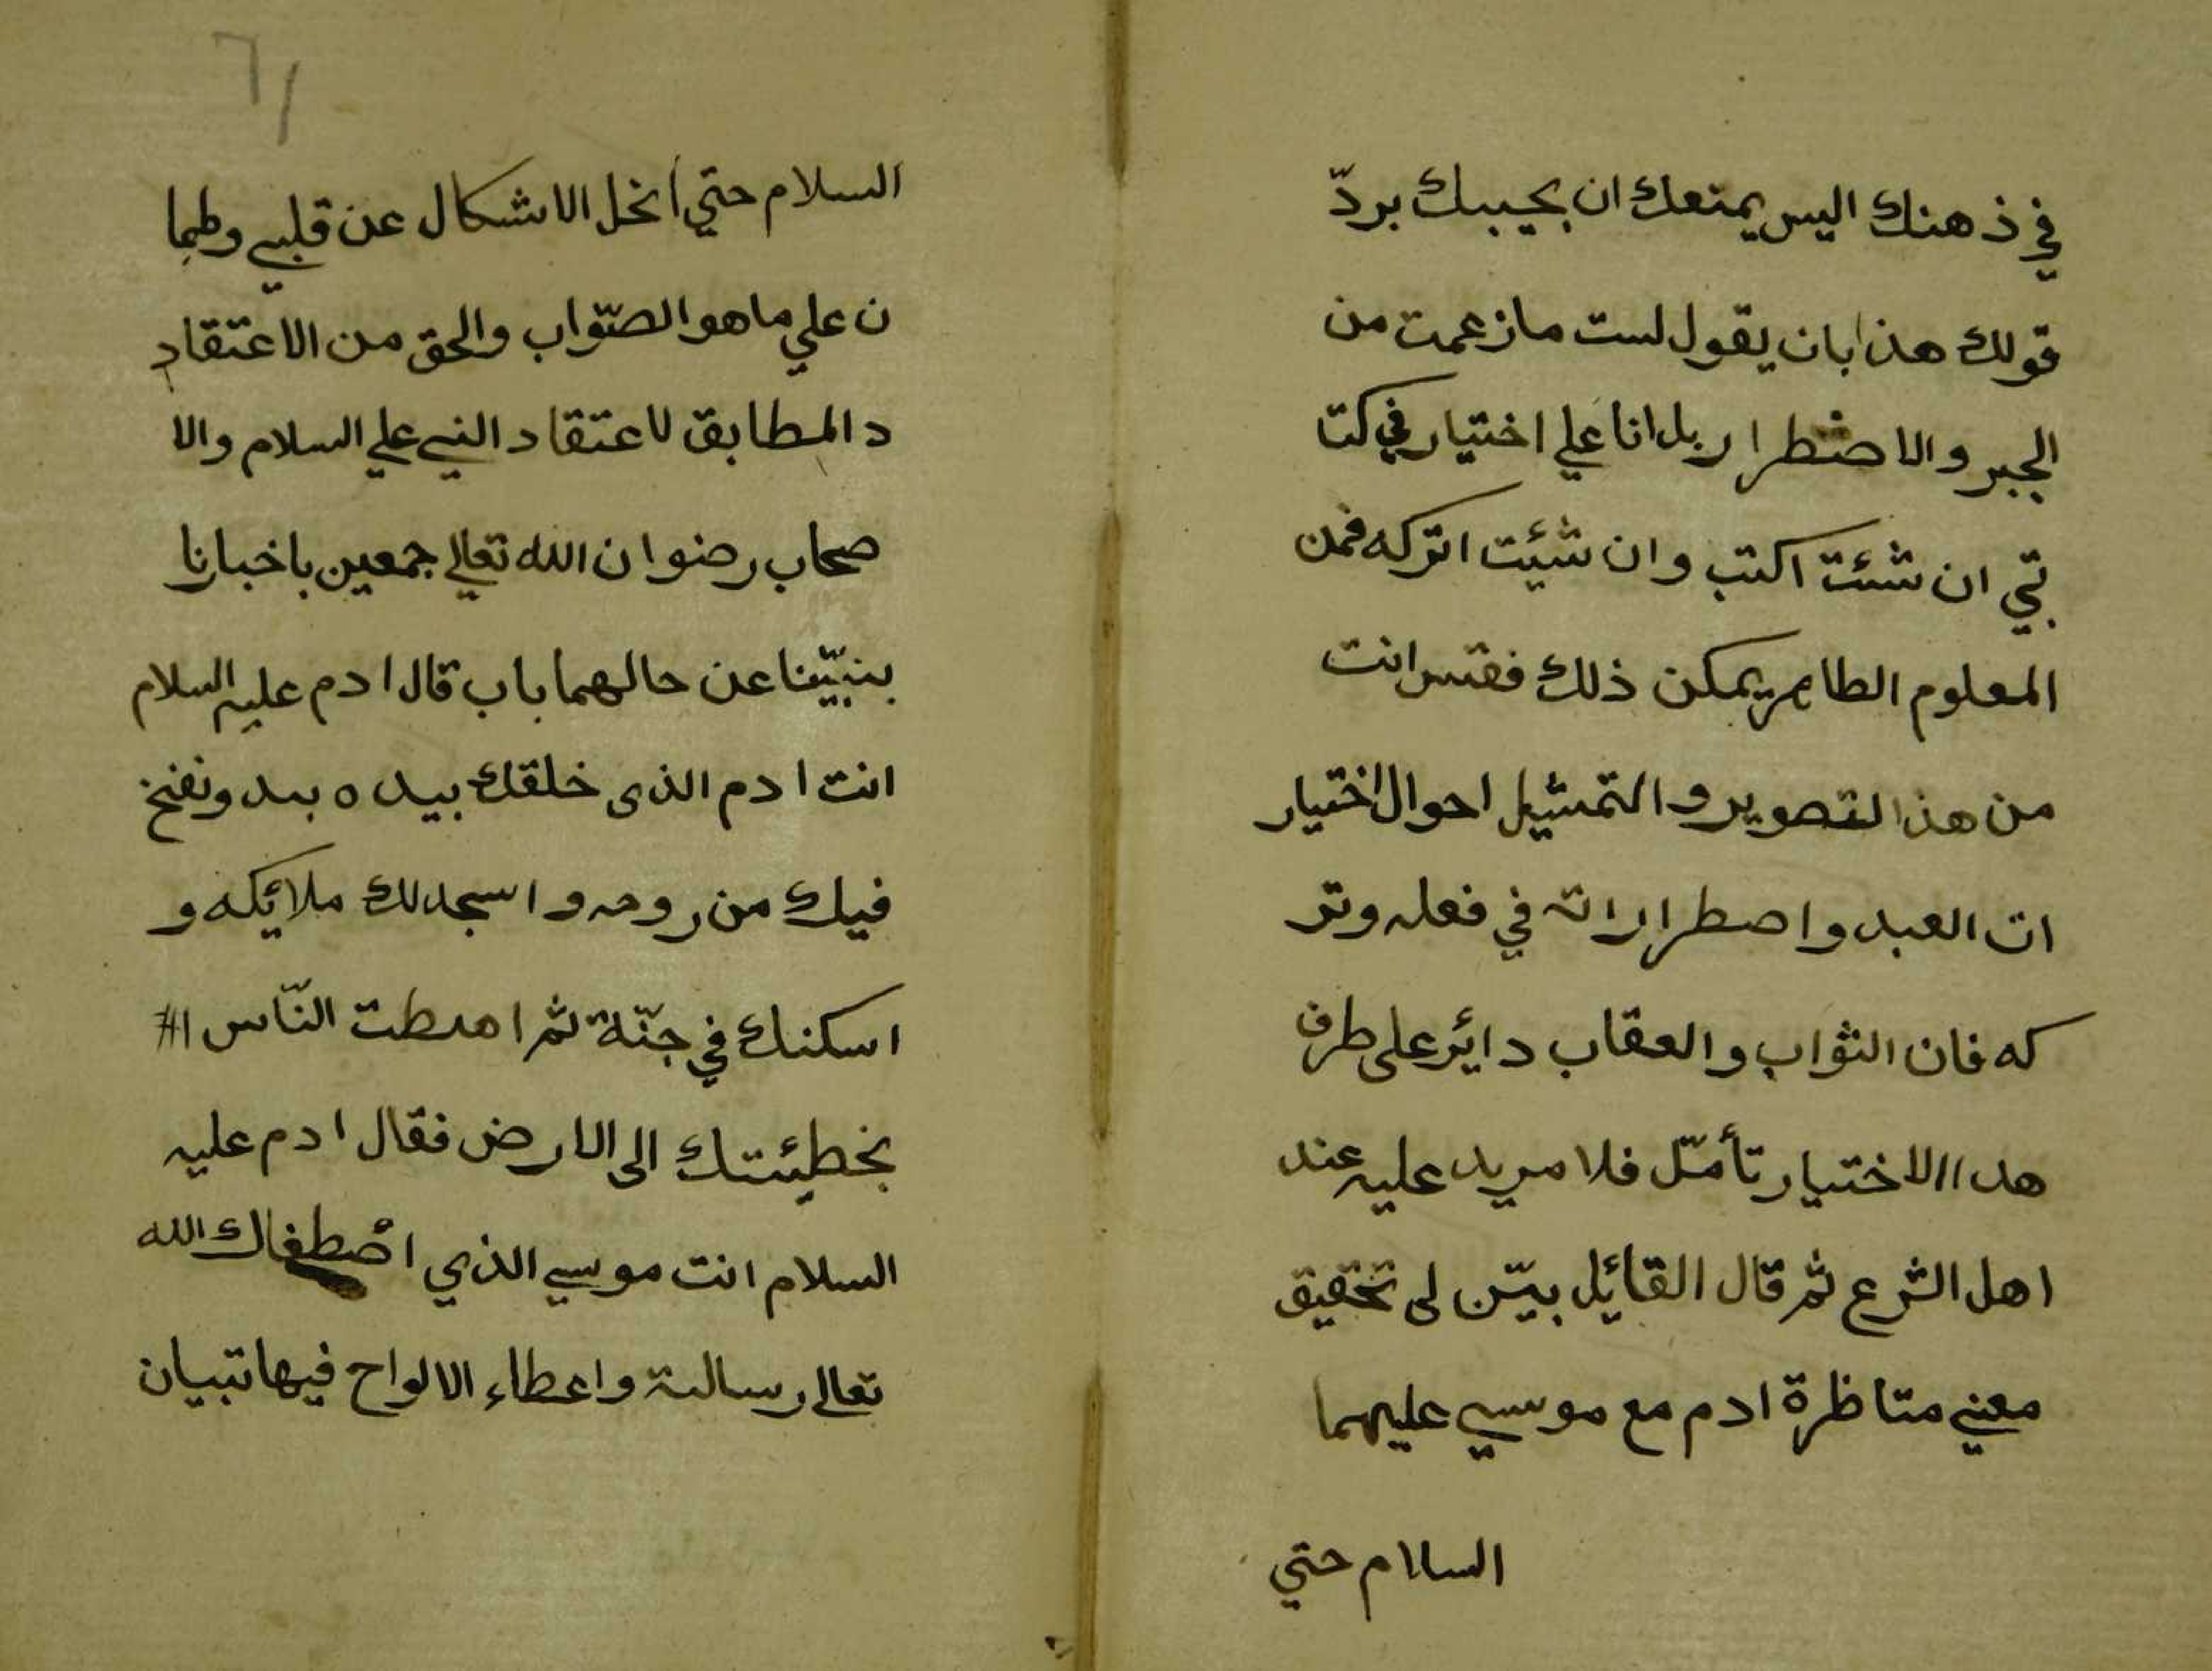 في ذهنك اليس يمتعك ان يجيبك بردّ
قولك هذا بان يقول لست مازعمت من
الجبر والاضطرار بل انا علي اختيار في كتا
بتي ان شئت اكتب وان شيئت اتركه فمن
المعلوم الطاهر يمكن ذلك فقس انت
من هذا التصوير والتمثيل احوال اختيار
ات العبد واصطراراته في فعله وتر
كه فان الثواب والعقاب دائر على طرف
هدا الاختيار تأمّل فلا مريد عليه عند
اهل الشرع ثم قال القائل بيّن لى تحقيق
معني متاظرة ادم مع موسي عليهما
السلام حتي
٦١
السلام حتي انحل الاشكال عن قلبي وطما
ن علي ما هو الصّواب والحق من الاعتقاد
د المطابق لاعتقاد النبي علي السلام والا
صحاب رضوان الله تعالي جمعين باخبارنا
بنبيّنا عن حالهما باب قال ادم عليه السلام
انت ادم الذى خلقك بيده بيد ونفخ
فيك من روحه واسجد لك ملائكه و
اسكنك في جنّة ثم اهبطت النّاس
بخطيئتك الى الارض فقال ادم عليه
السلام انت موسي الذي اصطفاك الله
تعالي رسالته واعطاء الالواح فيها تبيان